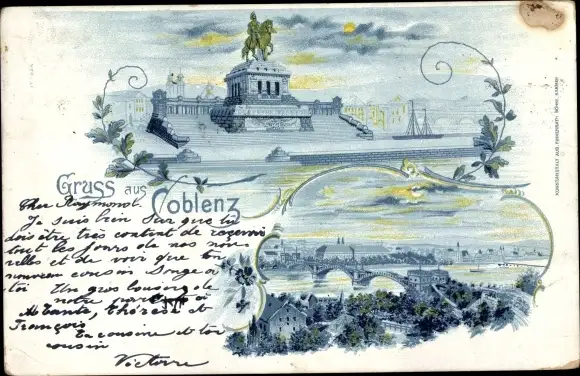 Gruss aus
Coblenz
Cher Raymond.
Je suis bien sur que tu
dois être très content de recevoir
tout les jours de nos nou-
velles et de voir que ton
nouveau cousin songe à
toi Un gros baiser de
notre part à
M Tante, Thérèse et
François
Ta cousine et ton
cousin
Victoire
KUNSTANSTALT